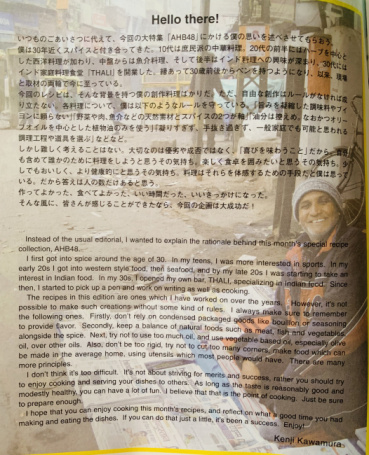 Hello there!
いつものごあいさつに代えて、今回の大特集「AHB48」にかける僕の思いを述べさせてもらおう。
僕は30年近くスパイスと付き合ってきた。10代は庶民派の中華料理。20代の前半にはハーブを中心と
した西洋料理が加わり、中盤からは魚介料理、そして後半はインド料理への興味が深まり、30代には
インド家庭料理食堂「THALI」を開業した。縁あって30歳前後からペンを持つようになり、以来、現場
と取材の両輪で今に至っている。
今回のレシピは、そんな背景を持つ僕の創作料理ばかりだ。ただ、自由な創作にはルールがなければ成
り立たない。
オイルを中心とした植物油のみを使う）凝りすぎず、手抜き過ぎず、一般家庭でも可能と思われる
調理工程や道具を選ぶ）などなど。
しかし難しく考えることはない。大切なのは優劣や成否ではなく、「喜びを味わうこと」だから。自分
も含めて誰かのために料理をしようと思うその気持ち。楽しく食卓を囲みたいと思うその気持ち。少
しでもおいしく、より健康的にと思うその気持ち。料理はそれらを体感するための手段だと僕は思って
いる。だから答えは人の数だけあると思う。
作ってよかった、食べてよかった、いい時間だった、いいきっかけになった。
そんな風に、皆さんが感じることができたなら、今回の企画は大成功だ！
Instead of the usual editorial, I wanted to explain the rationale behind this month's special recipe
collection, AHB48.
I first got into spice around the age of 30. In my teens, I was more interested in sports. In my
early 20s I got into western style food, then seafood, and by my late 20s I was starting to take an
interest in Indian food. In my 30s, I opened my own bar, THALI, specializing in Indian food. Since
then, I started to pick up a pen and work on writing as well as cooking.
The recipes in this edition are ones which I have worked on over the years. However, it's not
possible to make such creations without some kind of rules. I always make sure to remember
the following ones. Firstly, don't rely on condensed packaged goods, like bouillon or seasoning
to provide flavor. Secondly, keep a balance of natural foods such as meat, fish and vegetables
alongside the spice. Next, try not to use too much oil, and use vegetable based oil, especially olive
oil, over other oils. Also, don't be too rigid, try not to cut too many corners, make food which can
be made in the average home, using utensils which most people would have. There are many
more principles.
I don't think it's too difficult. It's not about striving for merits and success, rather you should try
to enjoy cooking and serving your dishes to others. As long as the taste is reasonably good and
modestly healthy, you can have a lot of fun. I believe that that is the point of cooking. Just be sure
to prepare enough.
I hope that you can enjoy cooking this month's recipes, and reflect on what a good time you had
making and eating the dishes. If you can do that just a little, it's been a success. Enjoy!
Kenji Kawamura